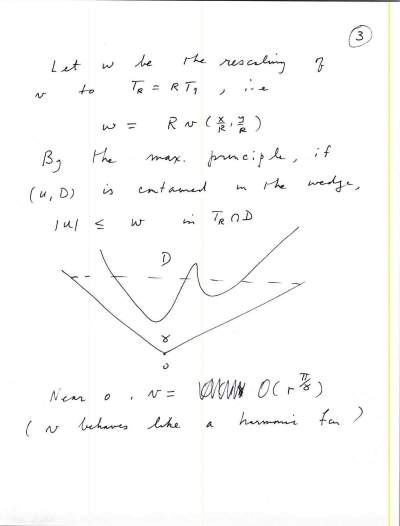 3
Let w be the rescaling of
v to T_R = R T_1 , i.e
w = R v ( x/R , y/R )
By the max. principle, if
(u, D) is contained in the wedge,
|u| ≤ w in T_R ∩ D
D
γ
0
Near 0 , v = O( r^{π/γ} )
( v behaves like a harmonic fcn )